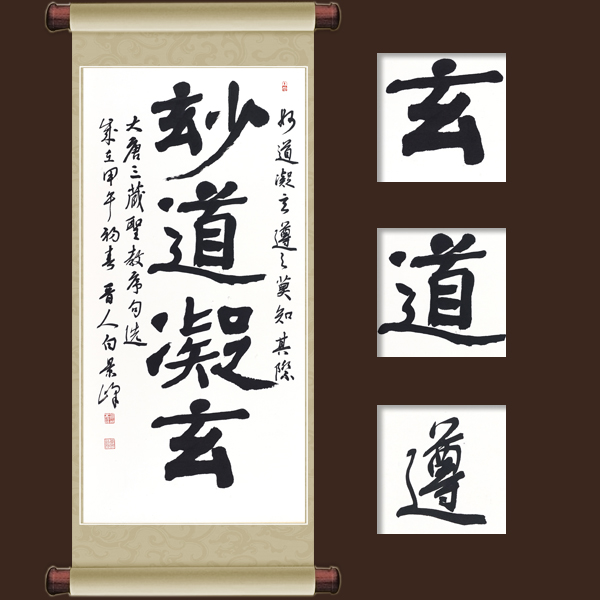 妙道凝玄遵之莫知其際
玅道凝玄
大唐三藏聖教序句选
歲在甲午初春 晋人白景峰
玄
道
遵